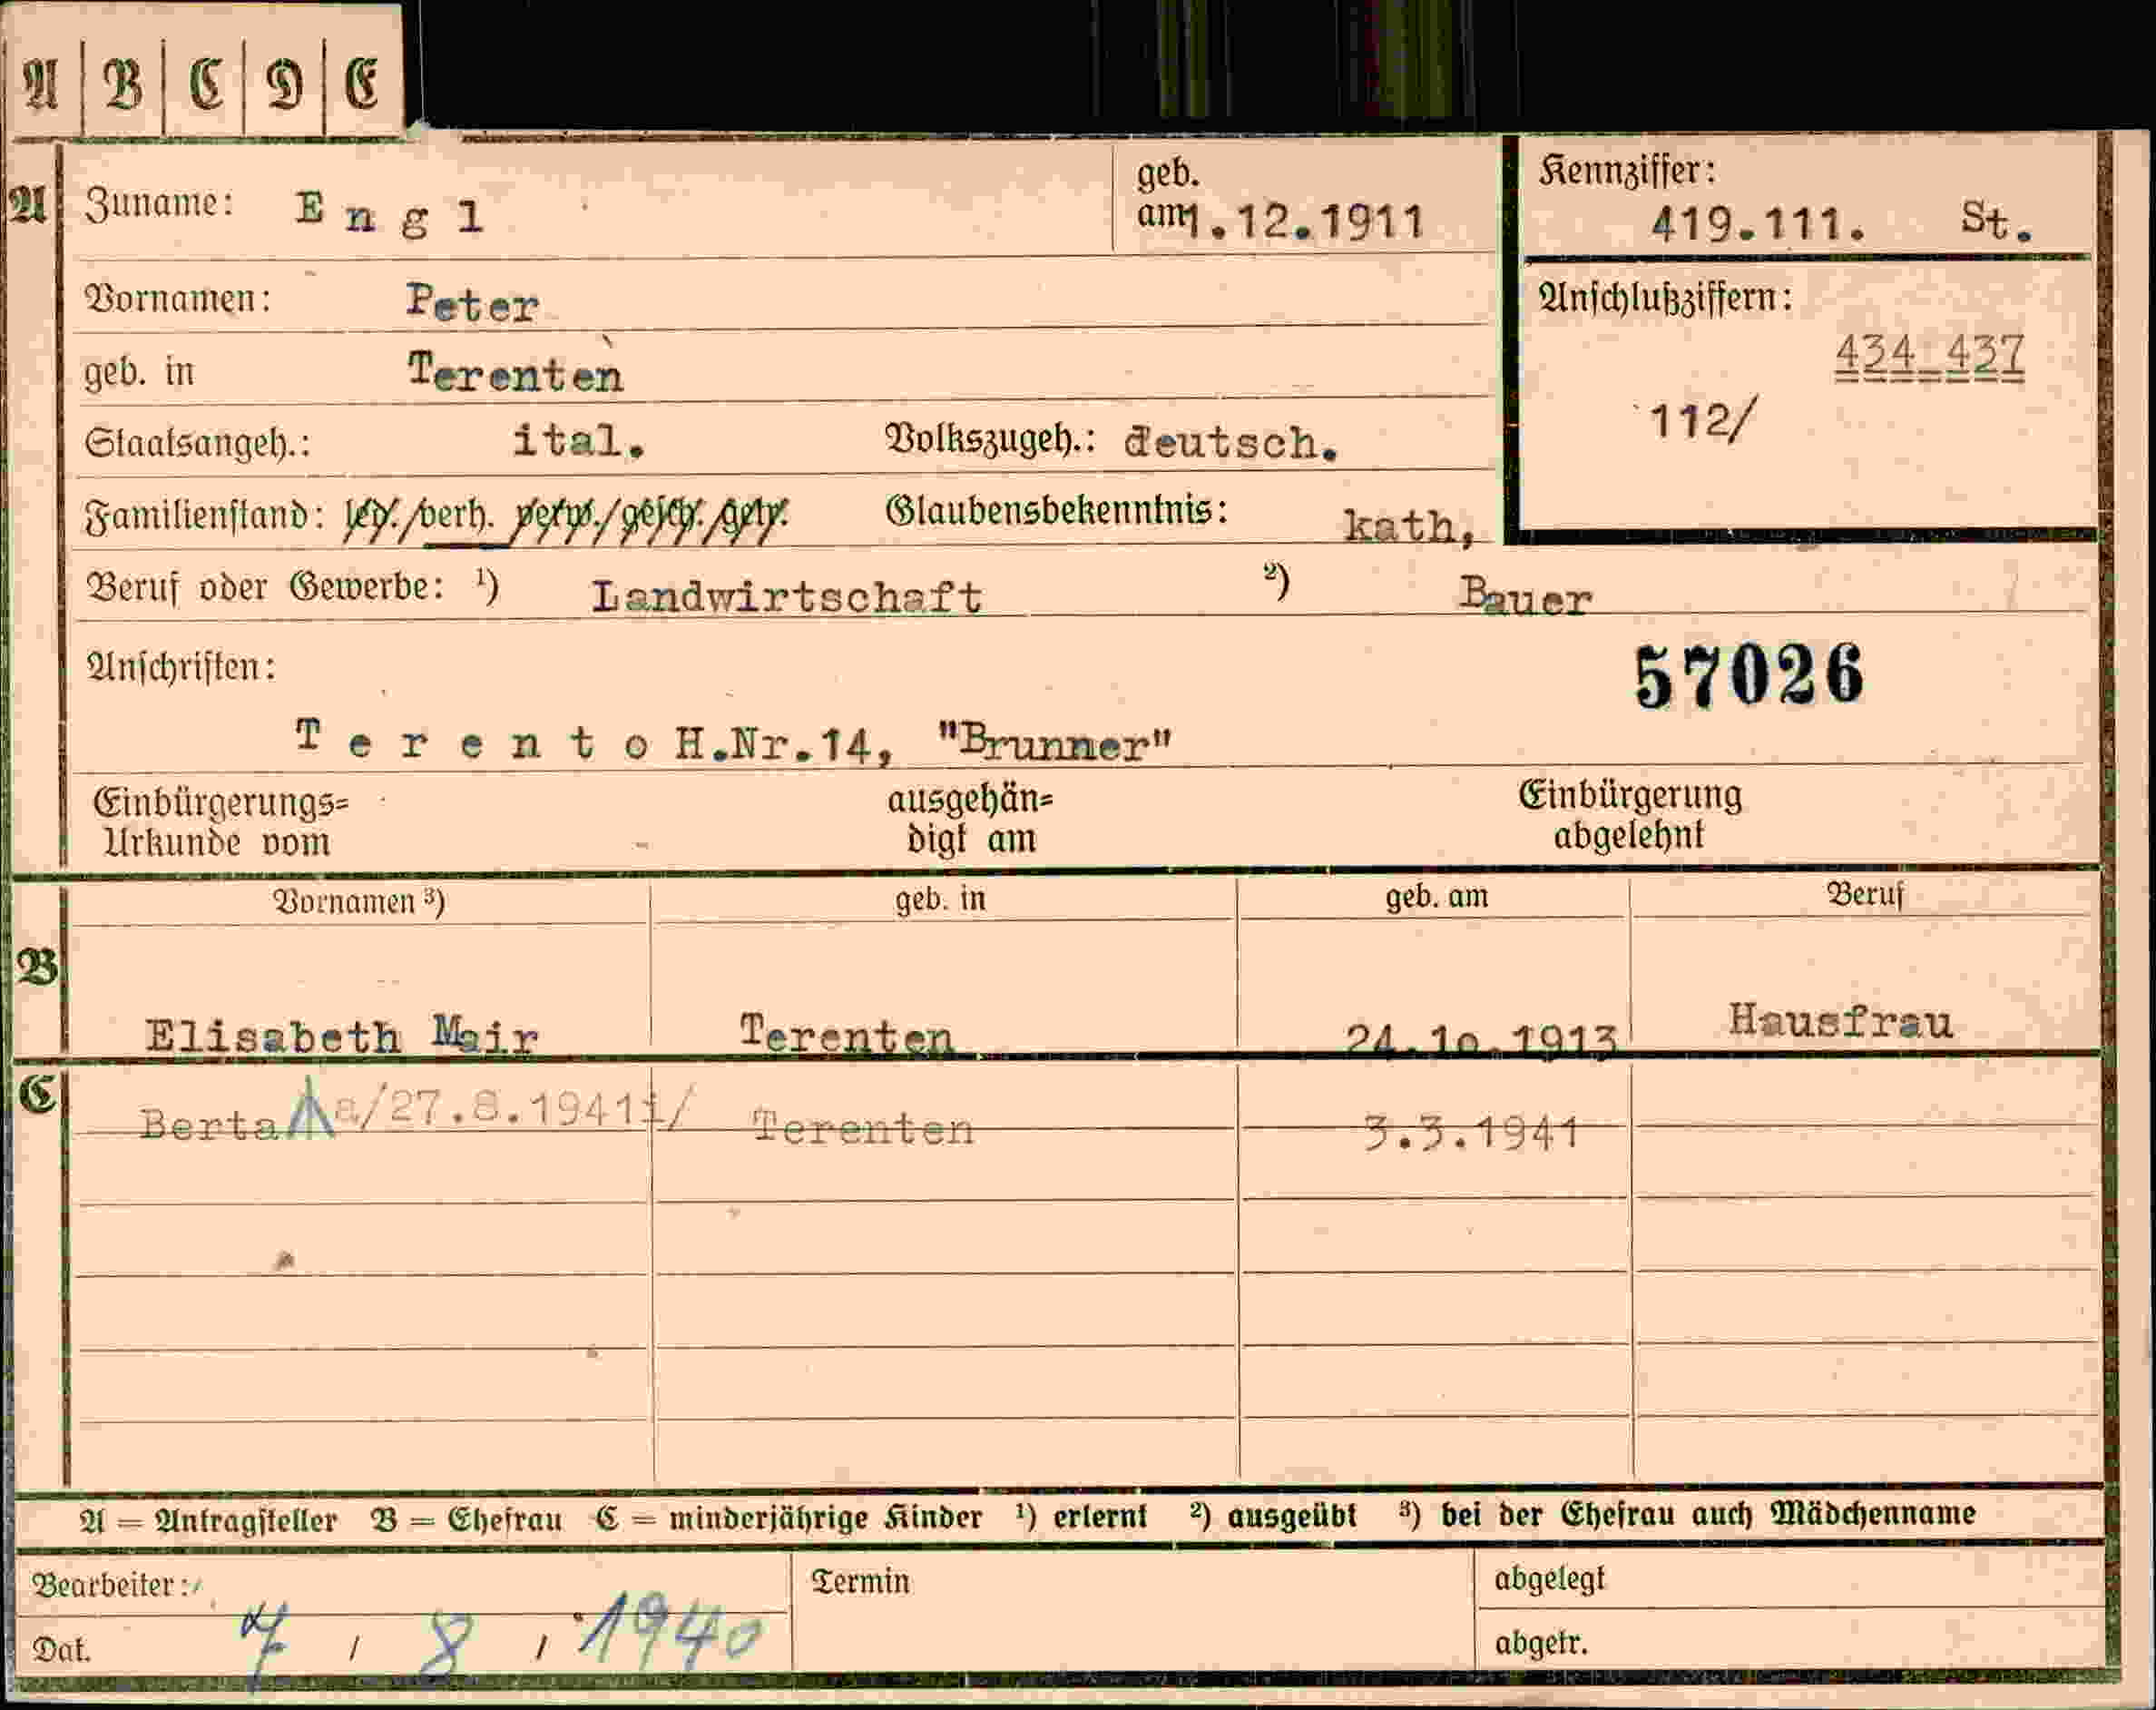 A B C D E
A Zuname: E n g l geb. am 1.12.1911 Kennziffer: 419.111. St.
Vornamen: Peter Anschlußziffern: 434 437
geb. in Terenten 112/
Staatsangeh.: ital. Volkszugeh.: deutsch.
Familienstand: led./verh. verw./gesch./getr. Glaubensbekenntnis: kath,
Beruf oder Gewerbe: ¹) Landwirtschaft ²) Bauer
Anschriften: 57026
T e r e n t o H.Nr.14, "Brunner"
Einbürgerungs= ausgehän= Einbürgerung
Urkunde vom digt am abgelehnt
Vornamen ³) geb. in geb. am Beruf
B Elisabeth Mair Terenten 24.1o.1913 Hausfrau
C Berta a/27.8.1941i/ Terenten 3.3.1941
A = Antragsteller B = Ehefrau C = minderjährige Kinder ¹) erlernt ²) ausgeübt ³) bei der Ehefrau auch Mädchenname
Bearbeiter: Termin abgelegt
Dat. 7 / 8 / 1940 abgetr.